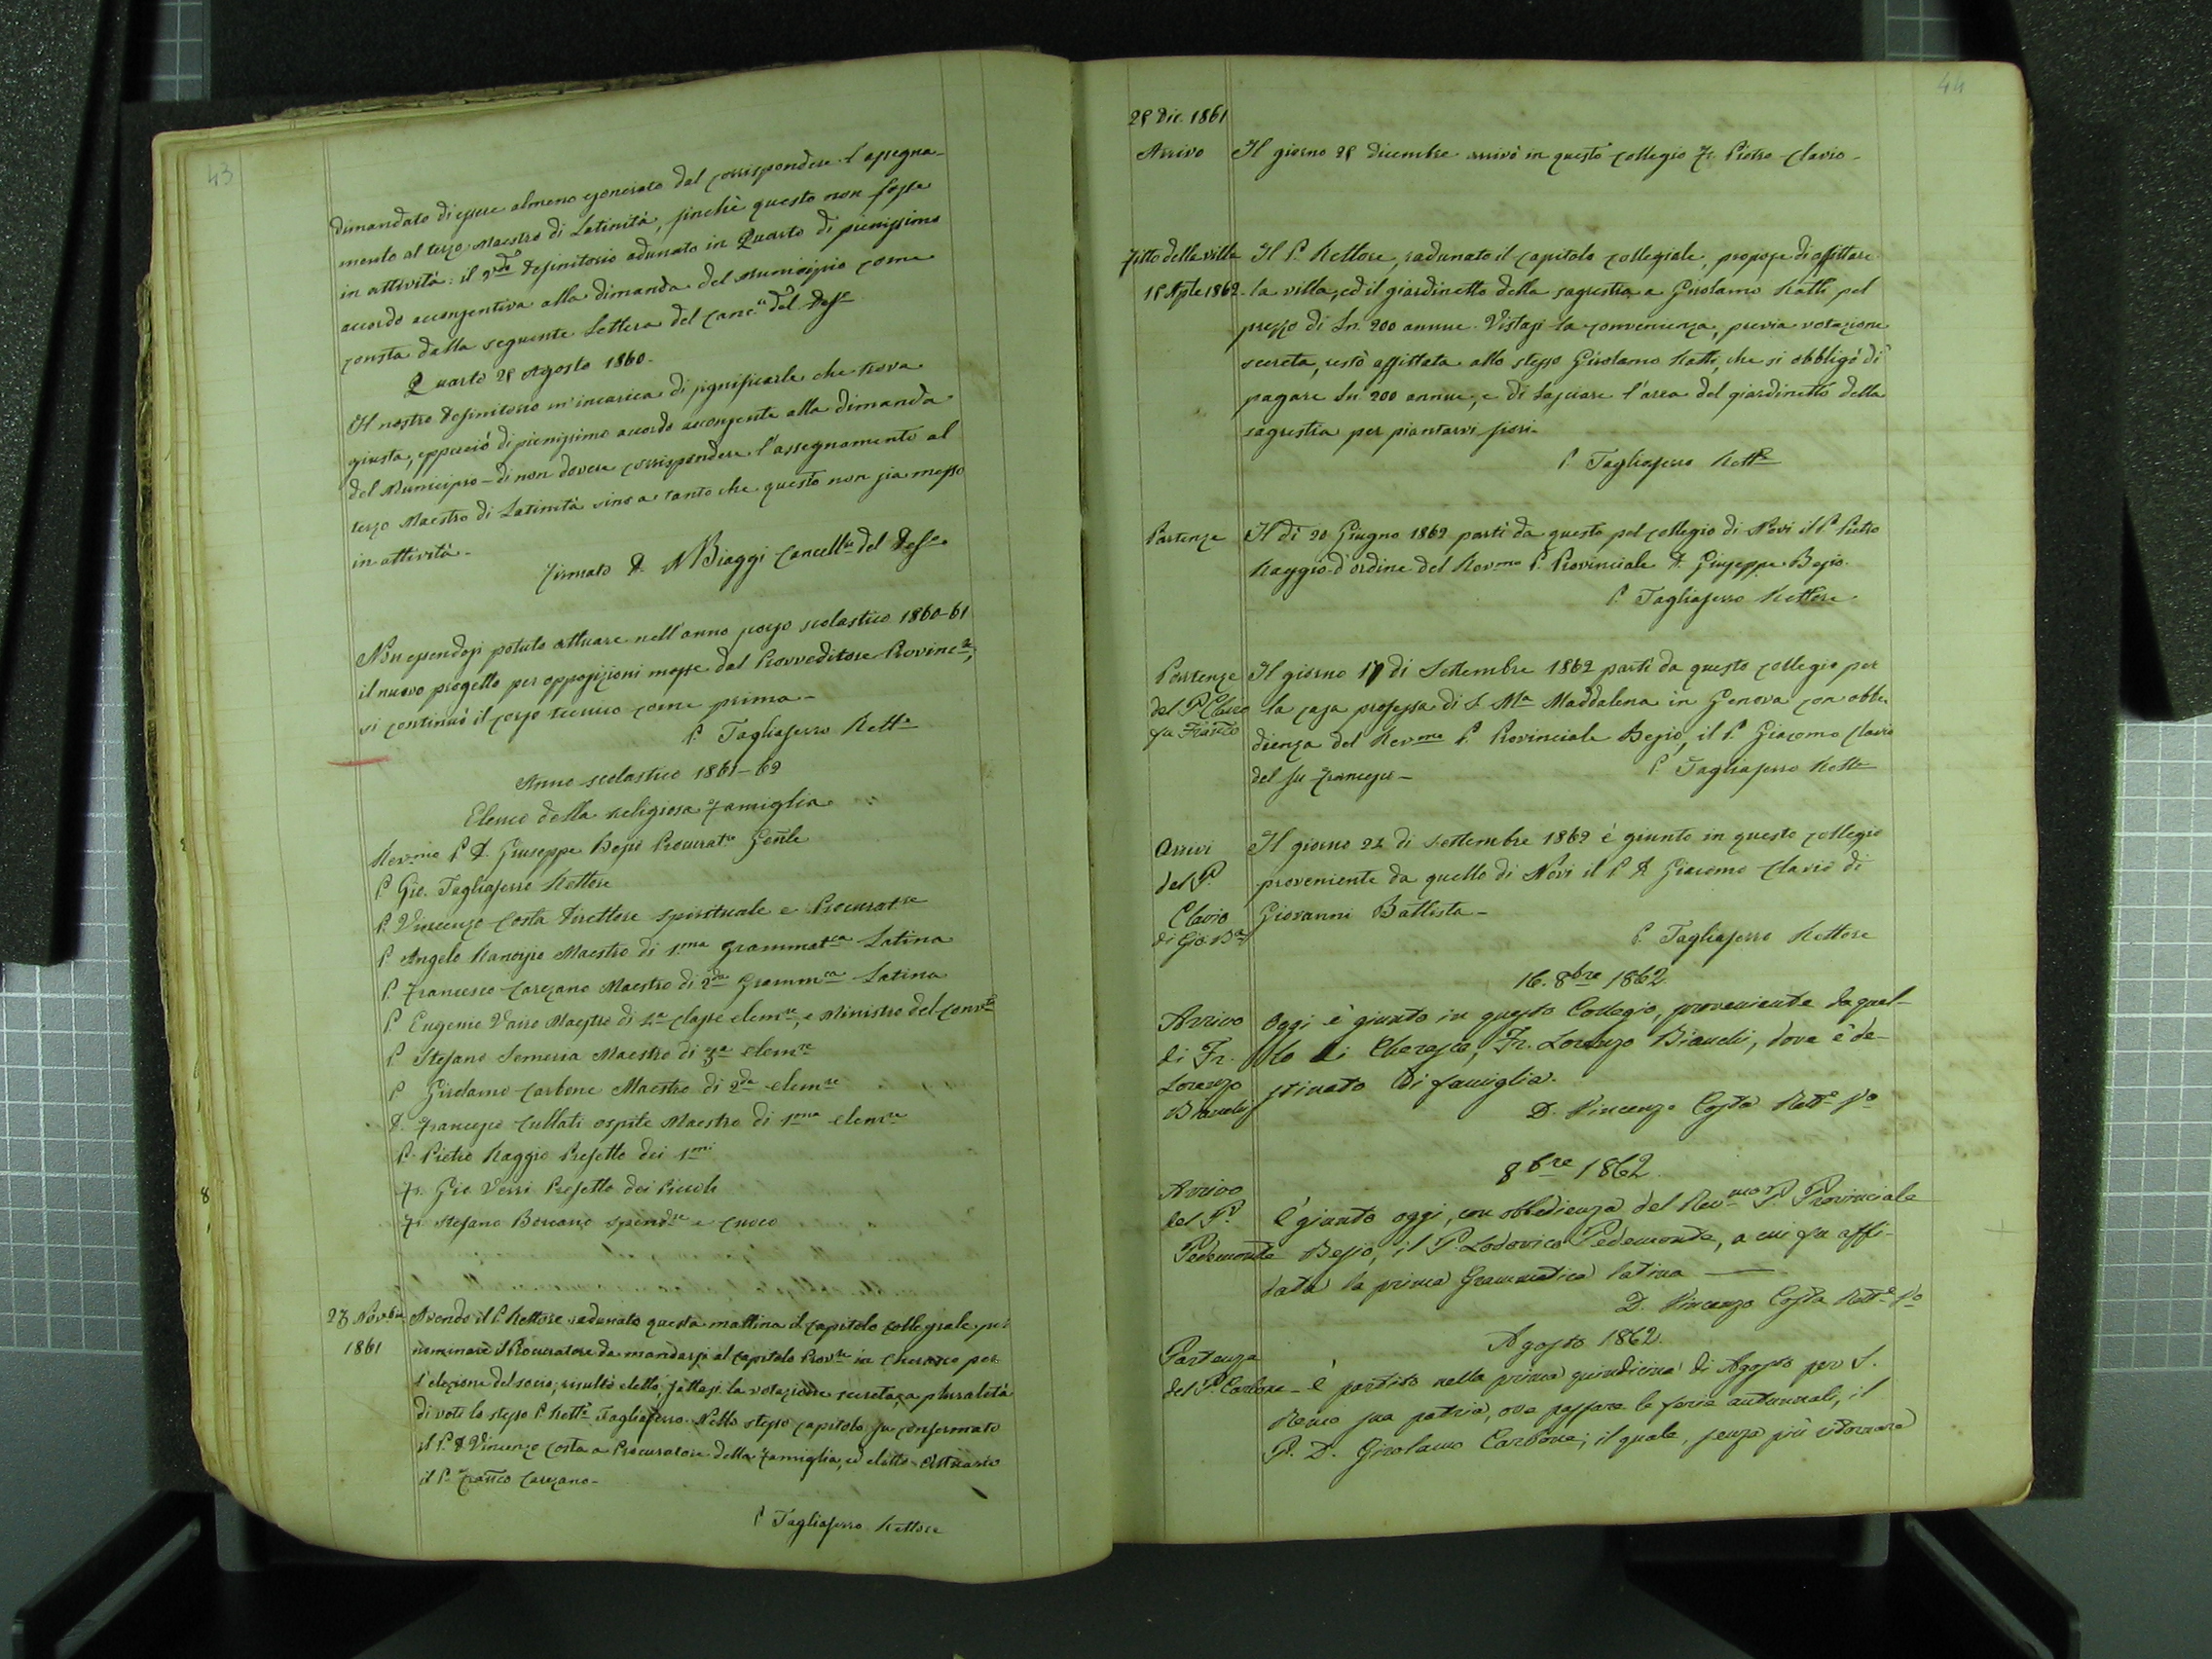 43
dimandato di essere almeno esonerato dal corrispondere l'assegna-
mento al terzo Maestro di Latinità, finchè questo non fosse
in attività: il Vdo Definitorio adunato in Quarto di pienissimo
accordo acconsentiva alla dimanda del Municipio come
consta dalla seguente Lettera del Canc.e del Defo
Quarto 28 Agosto 1860.
Il nostro Definitorio m'incarica di significarle che trova
giusta, epperciò di pienissimo accordo acconsente alla dimanda
del Municipio - di non dovere corrispondere l'assegnamento al
terzo Maestro di Latinità sino a tanto che questo non sia messo
in attività.
Firmato D. N Biaggi Cancellre del Defo
Non essendosi potuto attuare nell'anno scorso scolastico 1860-61
il nuovo progetto per opposizioni mosse dal Provveditore Provincle,
si continuò il corso tecnico come prima.-
P. Tagliaferro Rette
Anno scolastico 1861-62
Elenco della religiosa famiglia
Rev.mo P. D. Giuseppe Besio Procurat.re Genle
P. Gio. Tagliaferro Rettore
P. Vincenzo Costa Direttore spirituale e Procuratre
P. Angelo Maestro di 1.ma Grammatca Latina
P. Francesco Carezano Maestro di 2da Grammca Latina
P. Eugenio Vairo Maestro di 4a classe elemre, e Ministro del Convto
P. Stefano Semeria Maestro di 3a elemre
P. Girolamo Carbone Maestro di 2da elemre
D. Francesco Cullati ospite Maestro di 1ma elemre
P. Pietro Raggio Prefetto dei 1mi
Fr. Gio. Verri Prefetto dei Piccoli
Fr. Stefano spendre e cuoco
27 Novbre Avendo il P. Rettore radunato questa mattina il capitolo collegiale per
1861 nominare il Procuratore da mandarsi al capitolo Provle in Cherasco per
l'elezione del socio; risultò eletto, fattasi la votazione secreta, a pluralità
di voti lo stesso P. Rette Tagliaferro. Nello stesso capitolo fu confermato
il P. D. Vincenzo Costa a Procuratore della famiglia, ed eletto Attuario
il P. Franco Carezano-
P. Tagliaferro Rettore
44
28 Dic. 1861
Arrivo Il giorno 28 dicembre arrivò in questo collegio Fr. Pietro Clavio-
Fitto della villa Il P. Rettore, radunato il capitolo collegiale, propose di affittare
18 Aple 1862. la villa, ed il giardinetto della sagrestia a Girolamo Ratti pel
prezzo di Ln. 200 annue. Vistasi la convenienza, previa votazione
secreta, restò affittata allo stesso Girolamo Ratti, che si obbligò di
pagare Ln. 200 annue, e di lasciare l'area del giardinetto della
sagrestia per piantarvi fiori-
P. Tagliaferro Rette
Partenze Il dì 20 Giugno 1862 partì da questo pel collegio di Novi il P. Pietro
Raggio d'ordine del Rev.mo P. Provinciale D. Giuseppe Besio.
P. Tagliaferro Rettore.
Partenze Il giorno 17 di Settembre 1862 partì da questo collegio per
del P. Clavio la casa professa di S. Ma Maddalena in Genova con obbe-
fu Franco dienza del Rev.mo P. Provinciale Besio, il P. Giacomo Clavio
del fu Francesco- P. Tagliaferro Rette
Arrivi Il giorno 22 di settembre 1862 è giunto in questo collegio
del P. proveniente da quello di Novi il P. D. Giacomo Clavio di
Clavio Giovanni Battista-
di Gio. Ba P. Tagliaferro Rettore
16. 8bre 1862.
Arrivo Oggi è giunto in questo Collegio, proveniente da quel-
di Fr. lo di Cherasco, Fr. Lorenzo Bianchi, dove è de-
Lorenzo stinato di famiglia.
Bianchi D. Vincenzo Costa Rette
8bre 1862.
Arrivo
del P. È giunto oggi, con obbedienza del Rev.mo P. Provinciale
Pedemonte Besio, il P. Lodovico Pedemonte, a cui fu affi-
data la prima Grammatica latina —
D. Vincenzo Costa Rette
Agosto 1862.
Partenza
del P. Carbone- È partito nella prima quindicina di Agosto per S.
Remo sua patria, ove passare le ferie autunnali, il
P. D. Girolamo Carbone; il quale, senza più ritornare